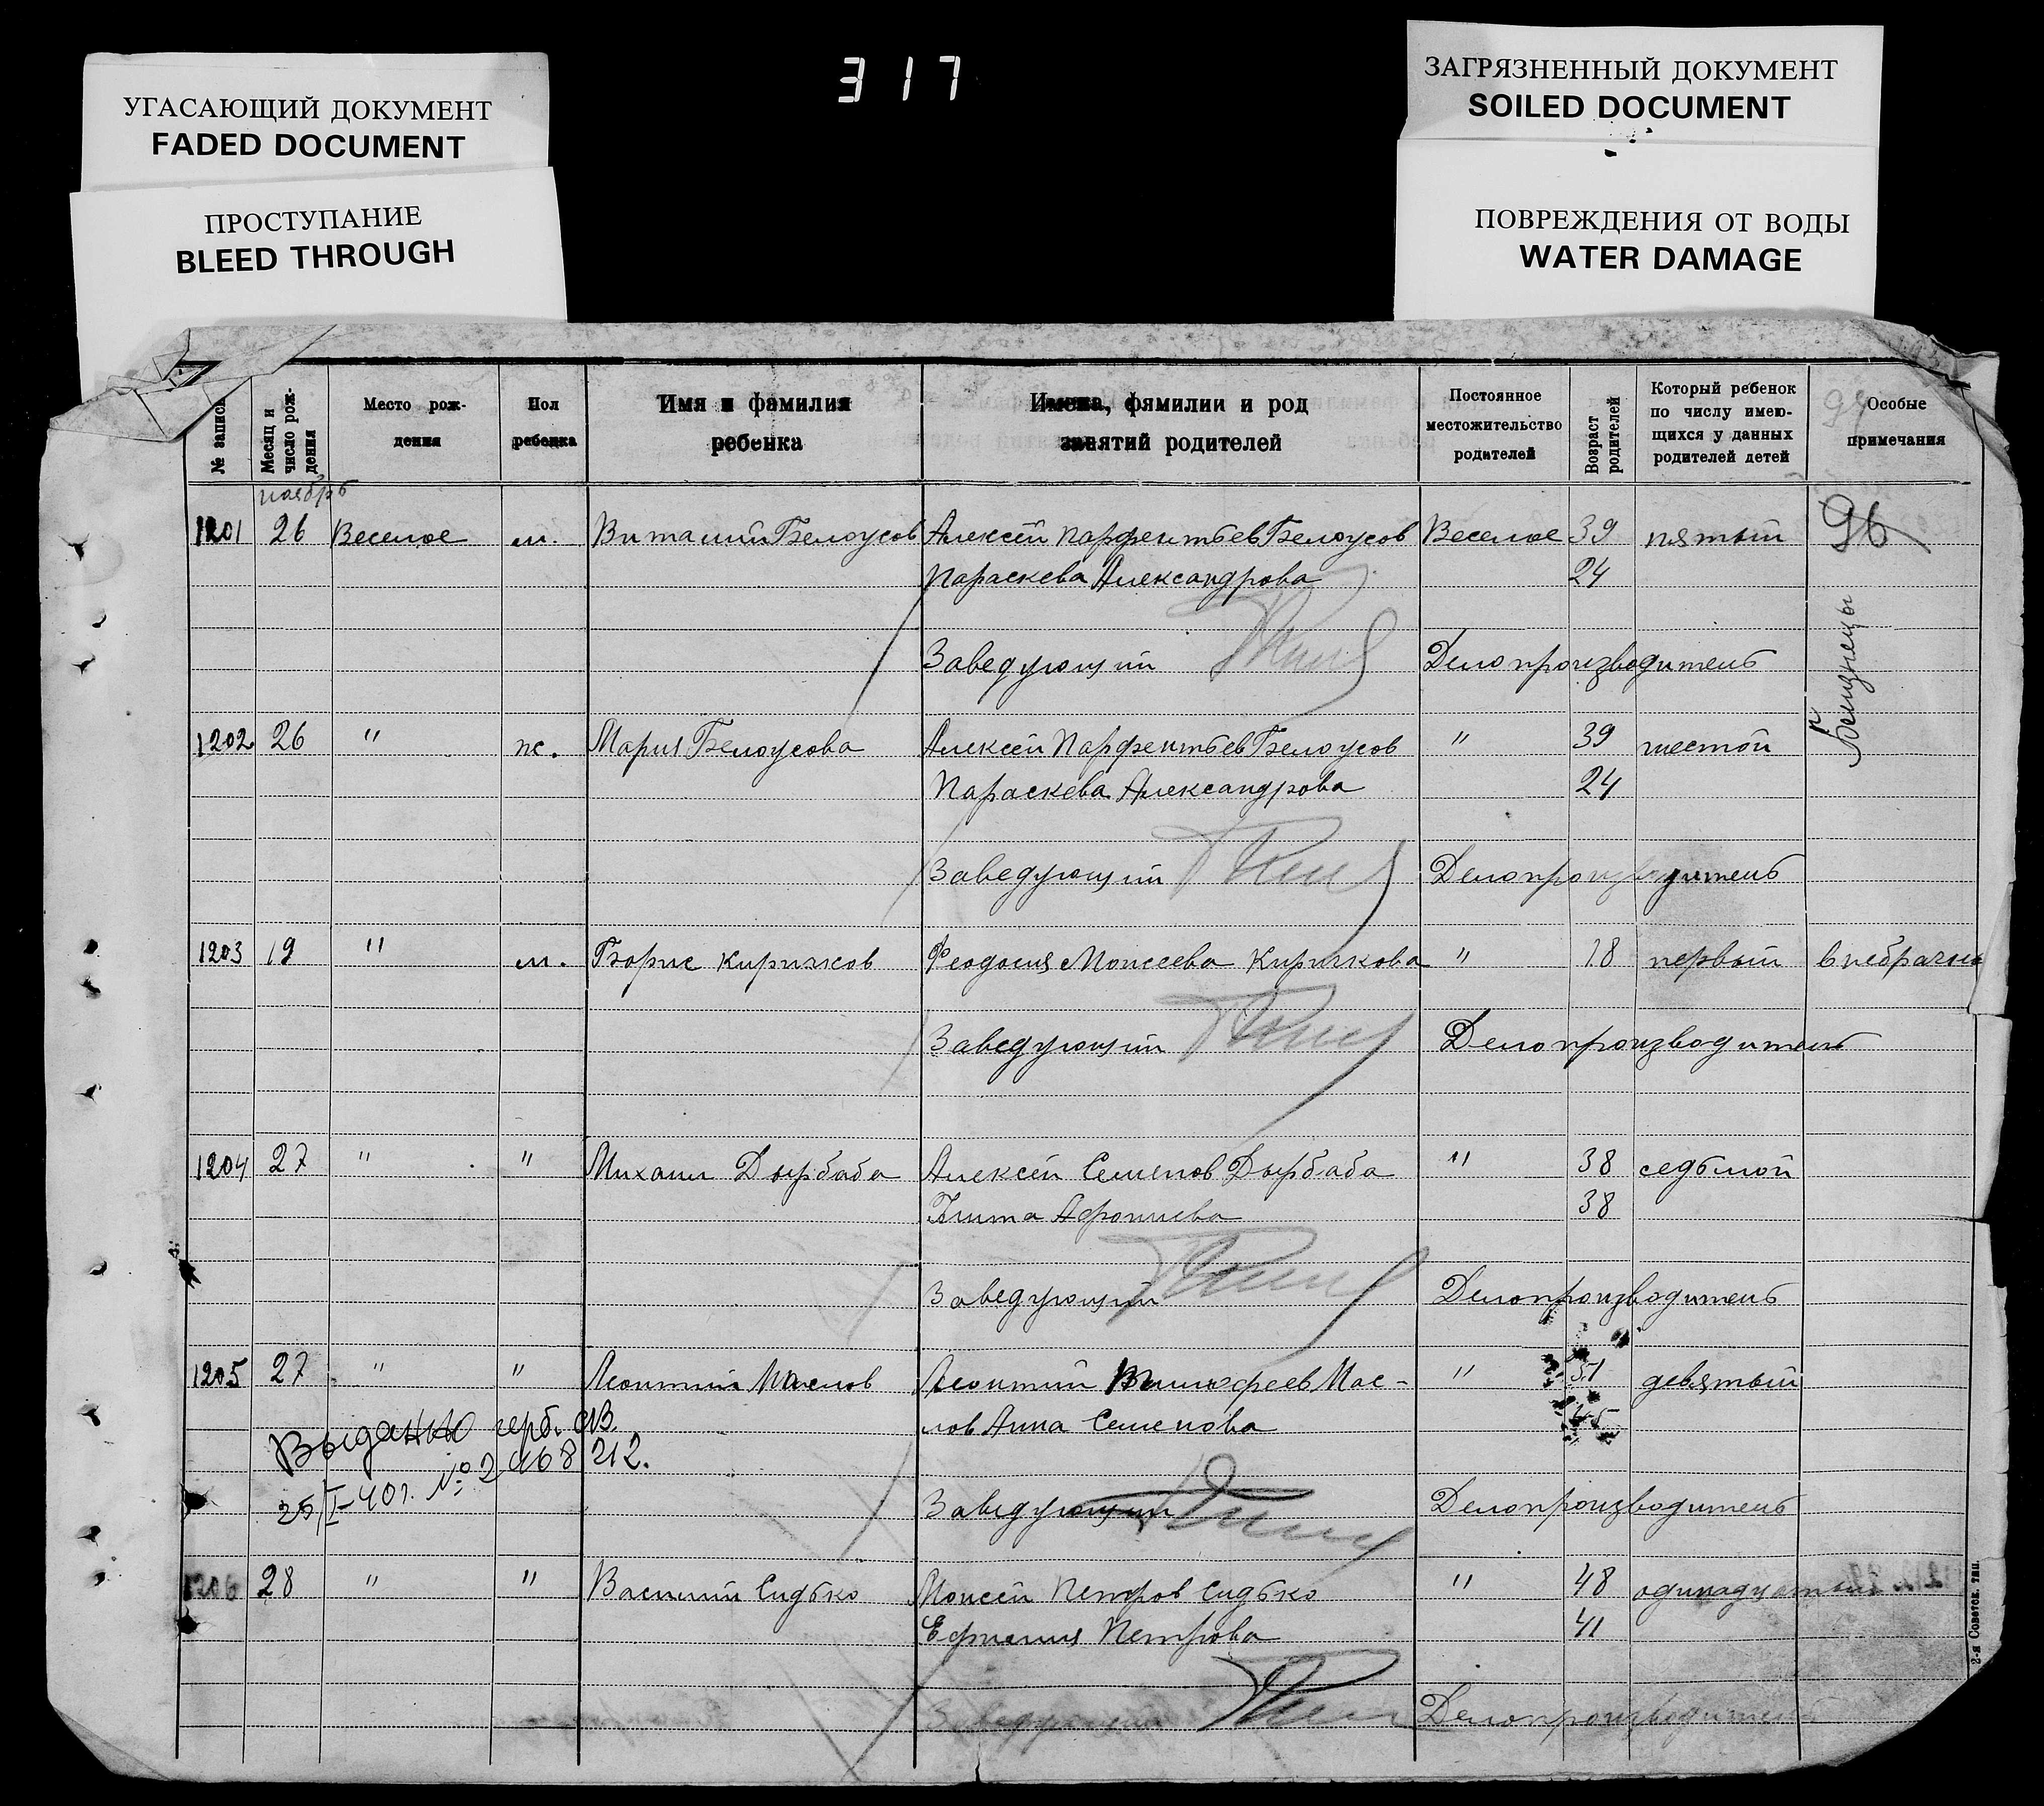 317
УГАСАЮЩИЙ ДОКУМЕНТ
FADED DOCUMENT
ПРОСТУПАНИЕ
BLEED THROUGH
ЗАГРЯЗНЕННЫЙ ДОКУМЕНТ
SOILED DOCUMENT
ПОВРЕЖДЕНИЯ ОТ ВОДЫ
WATER DAMAGE
№ записи
Месяц и число рож-дения
Место рож-дения
Пол ребенка
Имя и фамилия ребенка
Имена, фамилии и род занятий родителей
Постоянное местожительство родителей
Возраст родителей
Который ребенок по числу имею-щихся у данных родителей детей
Особые примечания
ноябрь
1201 26 Веселое м. Виталий Белоусов Алексей Парфентьев Белоусов Веселое 39 пятый 96
Параскева Александрова 24
Близнецы
Заведующий Делопроизводитель
1202 26 " ж. Мария Белоусова Алексей Парфентьев Белоусов " 39 шестой
Параскева Александрова 24
Заведующий Делопроизводитель
1203 19 " м. Борис Киричков Феодосия Моисеева Киричкова " 18 первый внебрачный
Заведующий Делопроизводитель
1204 27 " " Михаил Дырбаба Алексей Семенов Дырбаба " 38 седьмой
38
Заведующий Делопроизводитель
1205 27 " " Леонтий Маслов Леонтий Мас- " 51 девятый
лов Анна Семенова 45
Выдано герб. св.
25/I-40г. №
212.
Заведующий Делопроизводитель
1206 28 " " Василий Сидько Моисей Петров Сидько " 48 одинадцатый
Петрова 41
Заведующий Делопроизводитель
2-я Советск. тип.